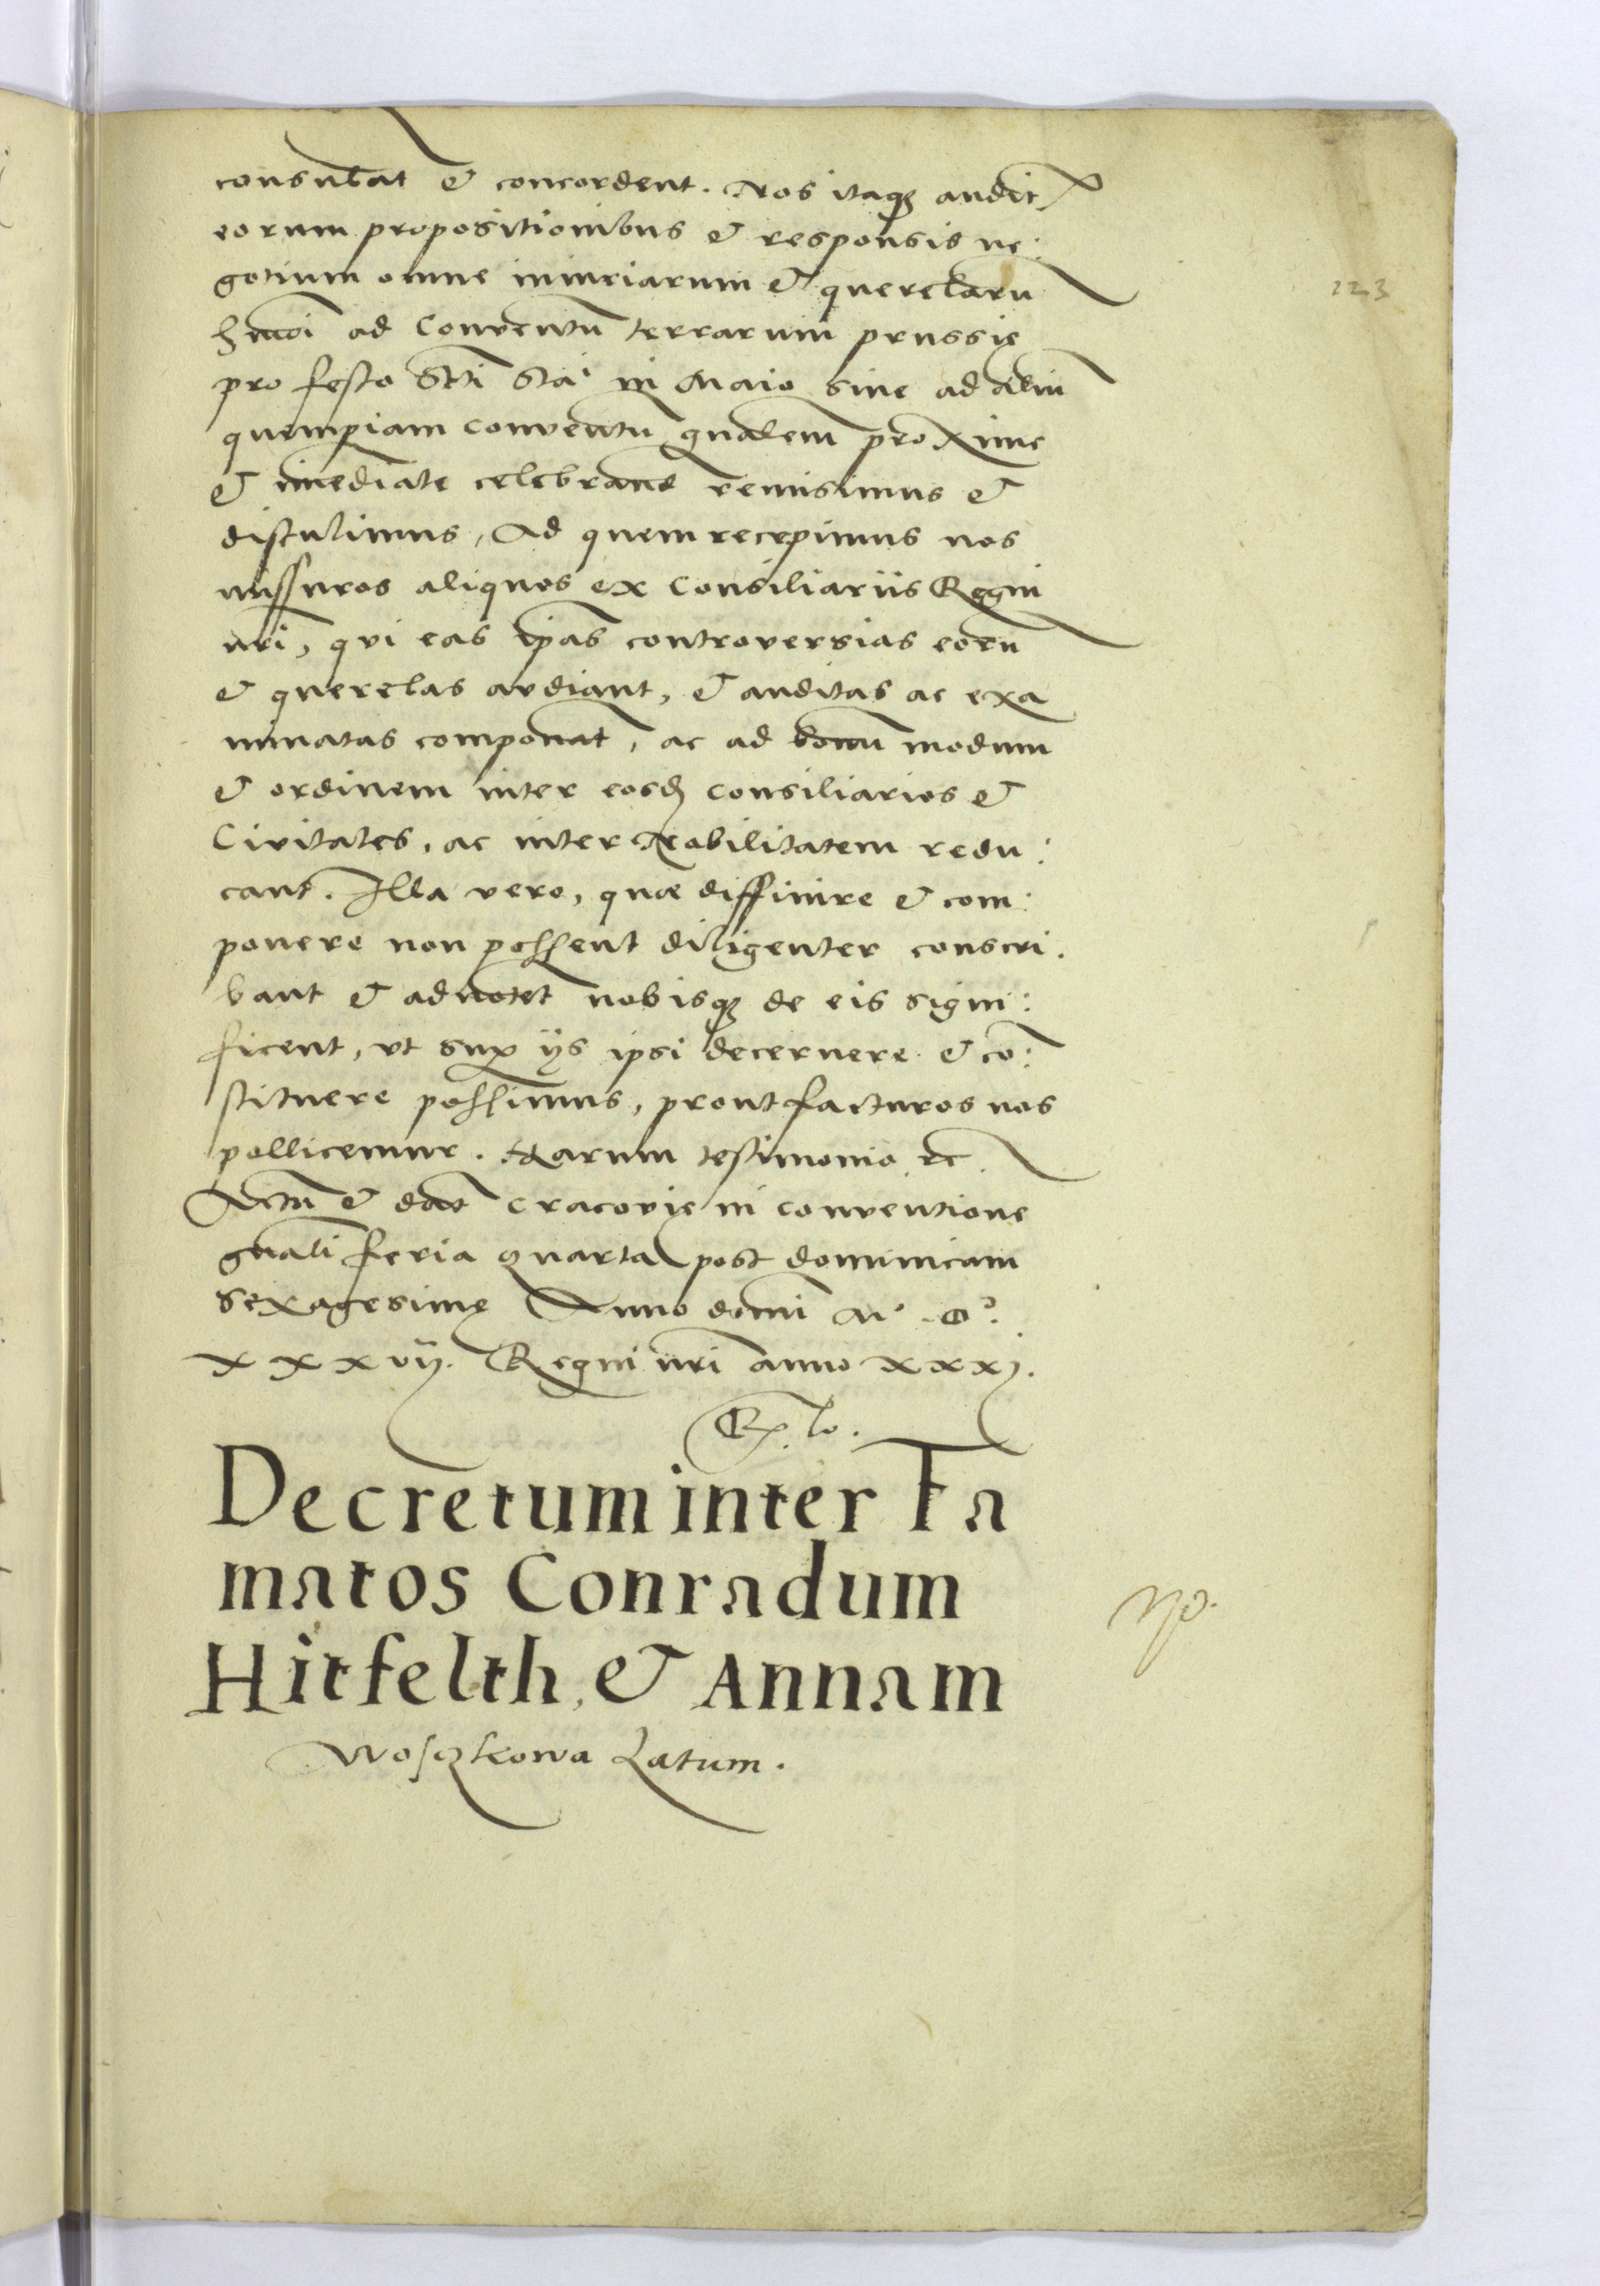 consulat̄ & concordent. Nos itaq₃ audit
eorum propositionibus & responsis ne:
gotium omne iniuriarum & querelarū
hmōi ad Conventū terrarum prussię
pro festo Scti Sta. in Maio sive ad aliū
quempiam conventū gnalem proxime
& imediate celebrand remisimus &
distulimus, Ad quem recepimus nos
missuros aliquos ex Consiliariis Regni
nri, qui eas ipas controversias eorū
& querelas audiant, & auditas ac exa
minatas componāt, ac ad bonū modum
& ordinem inter eosd consiliarios &
Civitates, ac inter Nobilitatem redu:
cant. Illa vero, quæ diffinire & com:
ponere non possent diligenter conscri.
bant & adnotēt nobisq₃ de eis signi:
ficent, ut sup ijs ipsi decernere & cō:
stituere possimus, prout facturos nos
pollicemur. Harum testimonio &c.
Actū & dat Cracovię in conventione
gnali feria quarta post dominicam
Sexagesimę Anno domi M° D°.
xxxvij. Regni nri anno xxxj.
Decretum inter Fa
matos Conradum
Hitfelth, & Annam
Wosczkowa Latum.
123